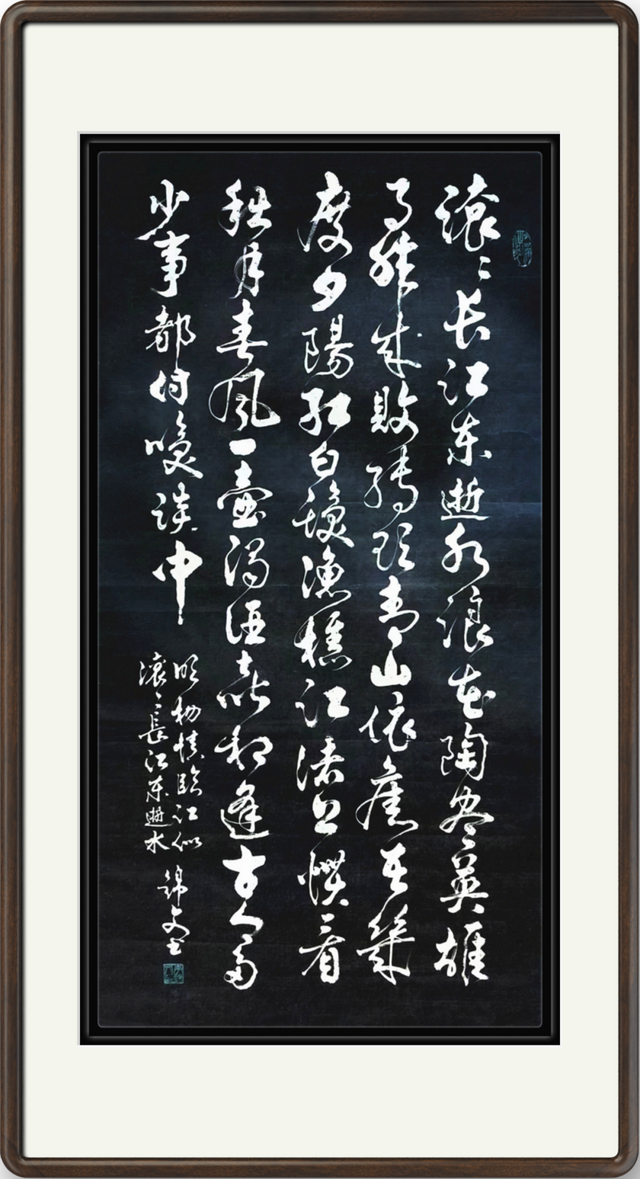 滚〻长江东逝水浪花陶尽英雄
是非成敗转头青山依舊在幾
度夕陽红白髮渔樵江渚上惯看
秋月春风一壶濁酒喜相逢古今多
少事都付笑談中
明杨慎临江仙
滚〻長江东逝水
錦文书